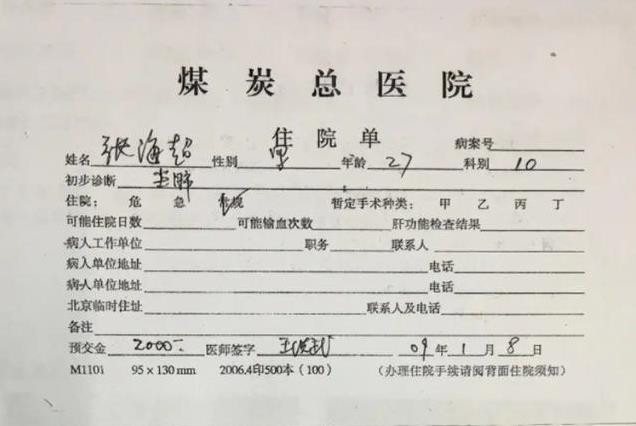 煤炭总医院
住院单 病案号
姓名 张海超 性别 男 年龄 27 科别 10
初步诊断 尘肺
住院: 危 急 一般 暂定手术种类: 甲 乙 丙 丁
可能住院日数 可能输血次数 肝功能检查结果
病人工作单位 职务 联系人
病人单位地址 电话
病人单位地址 电话
北京临时住址 联系人及电话
备注
预交金 2000 医师签字 09 年 1 月 8 日
M110i 95×130mm 2006.4印500本(100) (办理住院手续请阅背面住院须知)